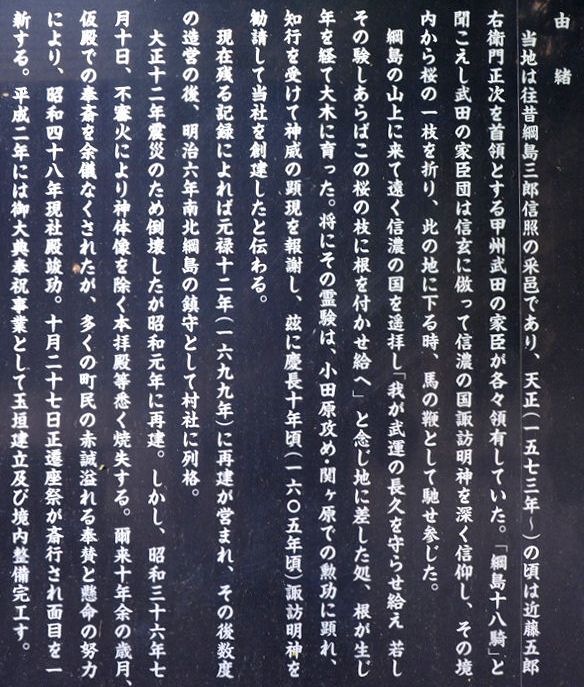 由緒
当地は往昔綱島三郎信照の采邑であり、天正(一五七三年~)の頃は近藤五郎
右衛門正次を首領とする甲州武田の家臣が各々領有していた。「綱島十八騎」と
聞こえし武田の家臣団は信玄に倣って信濃の国諏訪明神を深く信仰し、その境
内から桜の一枝を折り、此の地に下る時、馬の鞭として馳せ参じた。
綱島の山上に来て遠く信濃の国を遥拝し「我が武運の長久を守らせ給え 若し
その験しあらばこの桜の枝に根を付かせ給へ」と念じ地に差した処、根が生じ
年を経て大木に育った。将にその霊験は、小田原攻め・関ヶ原での勲功に顕れ、
知行を受けて神威の顕現を報謝し、茲に慶長十年頃(一六〇五年頃)諏訪明神を
勧請して当社を創建したと伝わる。
現在残る記録によれば元禄十二年(一六九九年)に再建が営まれ、その後数度
の造営の後、明治六年南北綱島の鎮守として村社に列格。
大正十二年震災のため倒壊したが昭和元年に再建。しかし、昭和三十六年七
月十日、不審火により神体像を除く本拝殿等悉く焼失する。爾来十年余の歳月、
仮殿での奉斎を余儀なくされたが、多くの町民の赤誠溢れる奉賛と懸命の努力
により、昭和四十八年現社殿竣功。十月二十七日正遷座祭が斎行され面目を一
新する。平成二年には御大典奉祝事業として玉垣建立及び境内整備完工す。